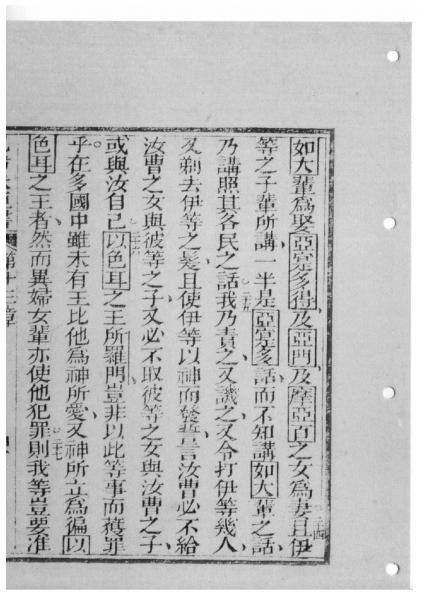 如大輩為娶亞寔多得及亞門及摩亞百之女為妻且伊
等之子輩所講一半是亞寔多話而不知講如大輩之話
乃講照其各民之話我乃責之又譏之又令打伊等幾人
又剃去伊等之髮且使伊等以神而發誓言汝曹必不給
汝曹之女與彼等之子又必不取彼等之女與汝曹之子
或與汝自己以色耳之王所羅門豈非以此等事而獲罪
乎在多國中雖未有王比他為神所愛又神所立為徧以
色耳之王者然而異婦女輩亦使他犯罪則我等豈要准
第十三章